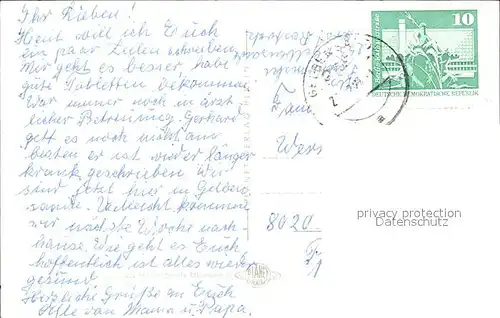 Ihr Lieben!
Heut will ich Euch
ein paar Zeilen schreiben
Mir geht es besser, habe
gute Tabletten bekommen
War immer noch in ärzt
licher Betreuung. Gerhard
gett es noch nicht am
besten er ist wieder länger
krank geschrieben Wir
sind jetzt hier in Gelben
sande. Vielleicht kommen
wir nächste Woche nach
hause. Wie geht es Euch
hoffentlich ist alles wieder
gesund
Herzliche Grüße an Euch
Alle von Mama u Papa.
10
DEUTSCHE DEMOKRATISCHE REPUBLIK
Fam
Wers
8020
privacy protection
Datenschutz
PLANET